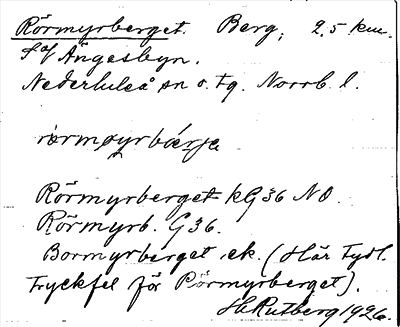 Rörmyrberget. Berg, 2,5 km.
S af Ängesbyn.
Nederluleå sn o. tg. Norrb. l.
Rörmyrberget kG36 NO.
Rörmyrb. G36.
Bormyrberget ek. (Här tydl.
tryckfel för Rörmyrberget).
HCRutberg 1926.